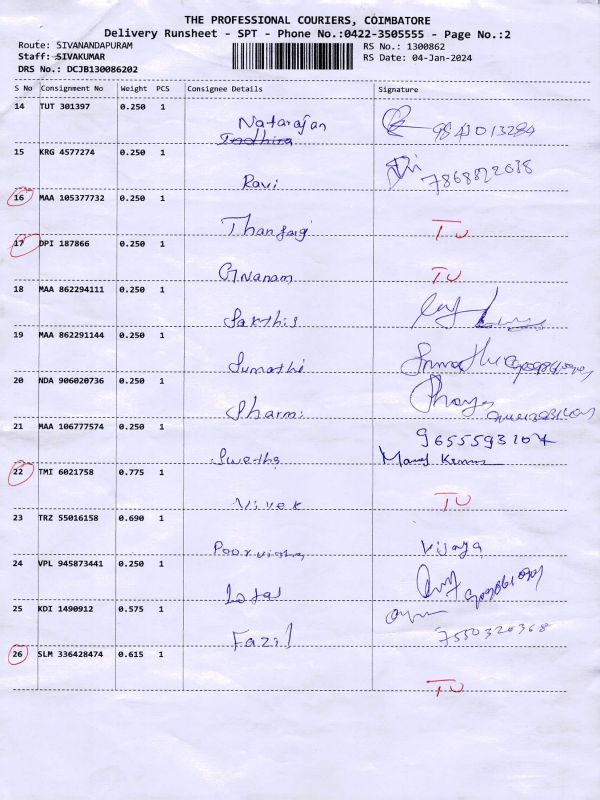 THE PROFESSIONAL COURIERS, COIMBATORE
Delivery Runsheet - SPT - Phone No.:0422-3505555 - Page No.:2
Route: SIVANANDAPURAM
RS No.: 1300862
Staff: SIVAKUMAR
RS Date: 04-Jan-2024
DRS No.: DCJB130086202
S No Consignment No Weight PCS Consignee Details Signature
14 TUT 301397 0.250 1
Natarajan
Indhira
9843013284
15 KRG 4577274 0.250 1
Ravi
7868822038
16 MAA 105377732 0.250 1
TU
17 DPI 187866 0.250 1
Gnanam TU
18 MAA 862294111 0.250 1
Sakthis
19 MAA 862291144 0.250 1
Sumathi Sumathi
20 NDA 906020736 0.250 1
Sharmi
21 MAA 106777574 0.250 1
9655593107
Swetha
22 TMI 6021758 0.775 1
Vivek TU
23 TRZ 55016158 0.690 1
Poorvisha Vijaya
24 VPL 945873441 0.250 1
25 KDI 1490912 0.575 1
Fazil 7550320368
26 SLM 336428474 0.615 1
TU